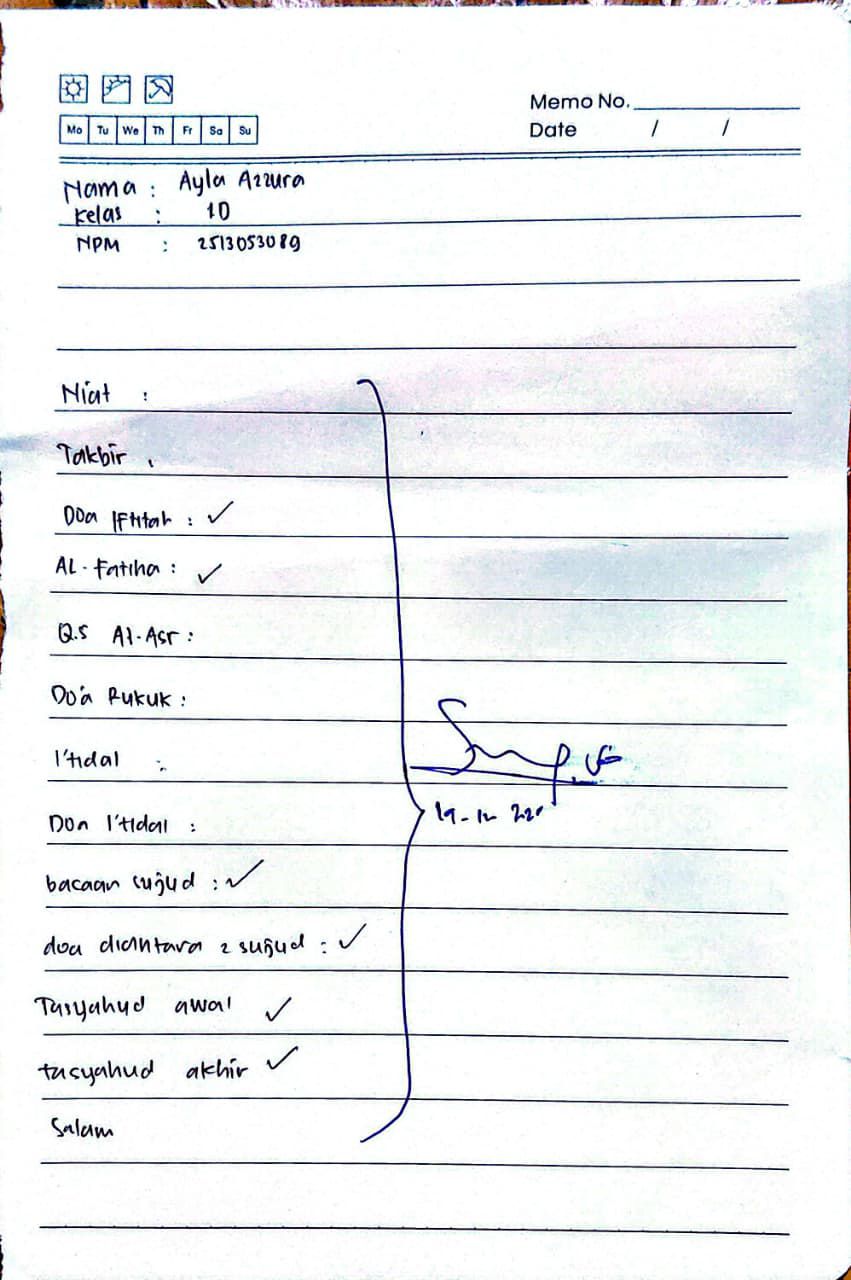 Mo Tu We Th Fr Sa Su
Memo No.
Date / /
Nama : Ayla Azzura
Kelas : 10
NPM : 2513053089
Niat :
Takbir
Doa Iftitah : ✓
AL-Fatiha : ✓
Q.S Al-Asr :
Do'a Rukuk :
I'tidal :
Doa I'tidal :
bacaan sujud : ✓
doa diantara 2 sujud : ✓
Tasyahud awal ✓
tasyahud akhir ✓
Salam
19-12